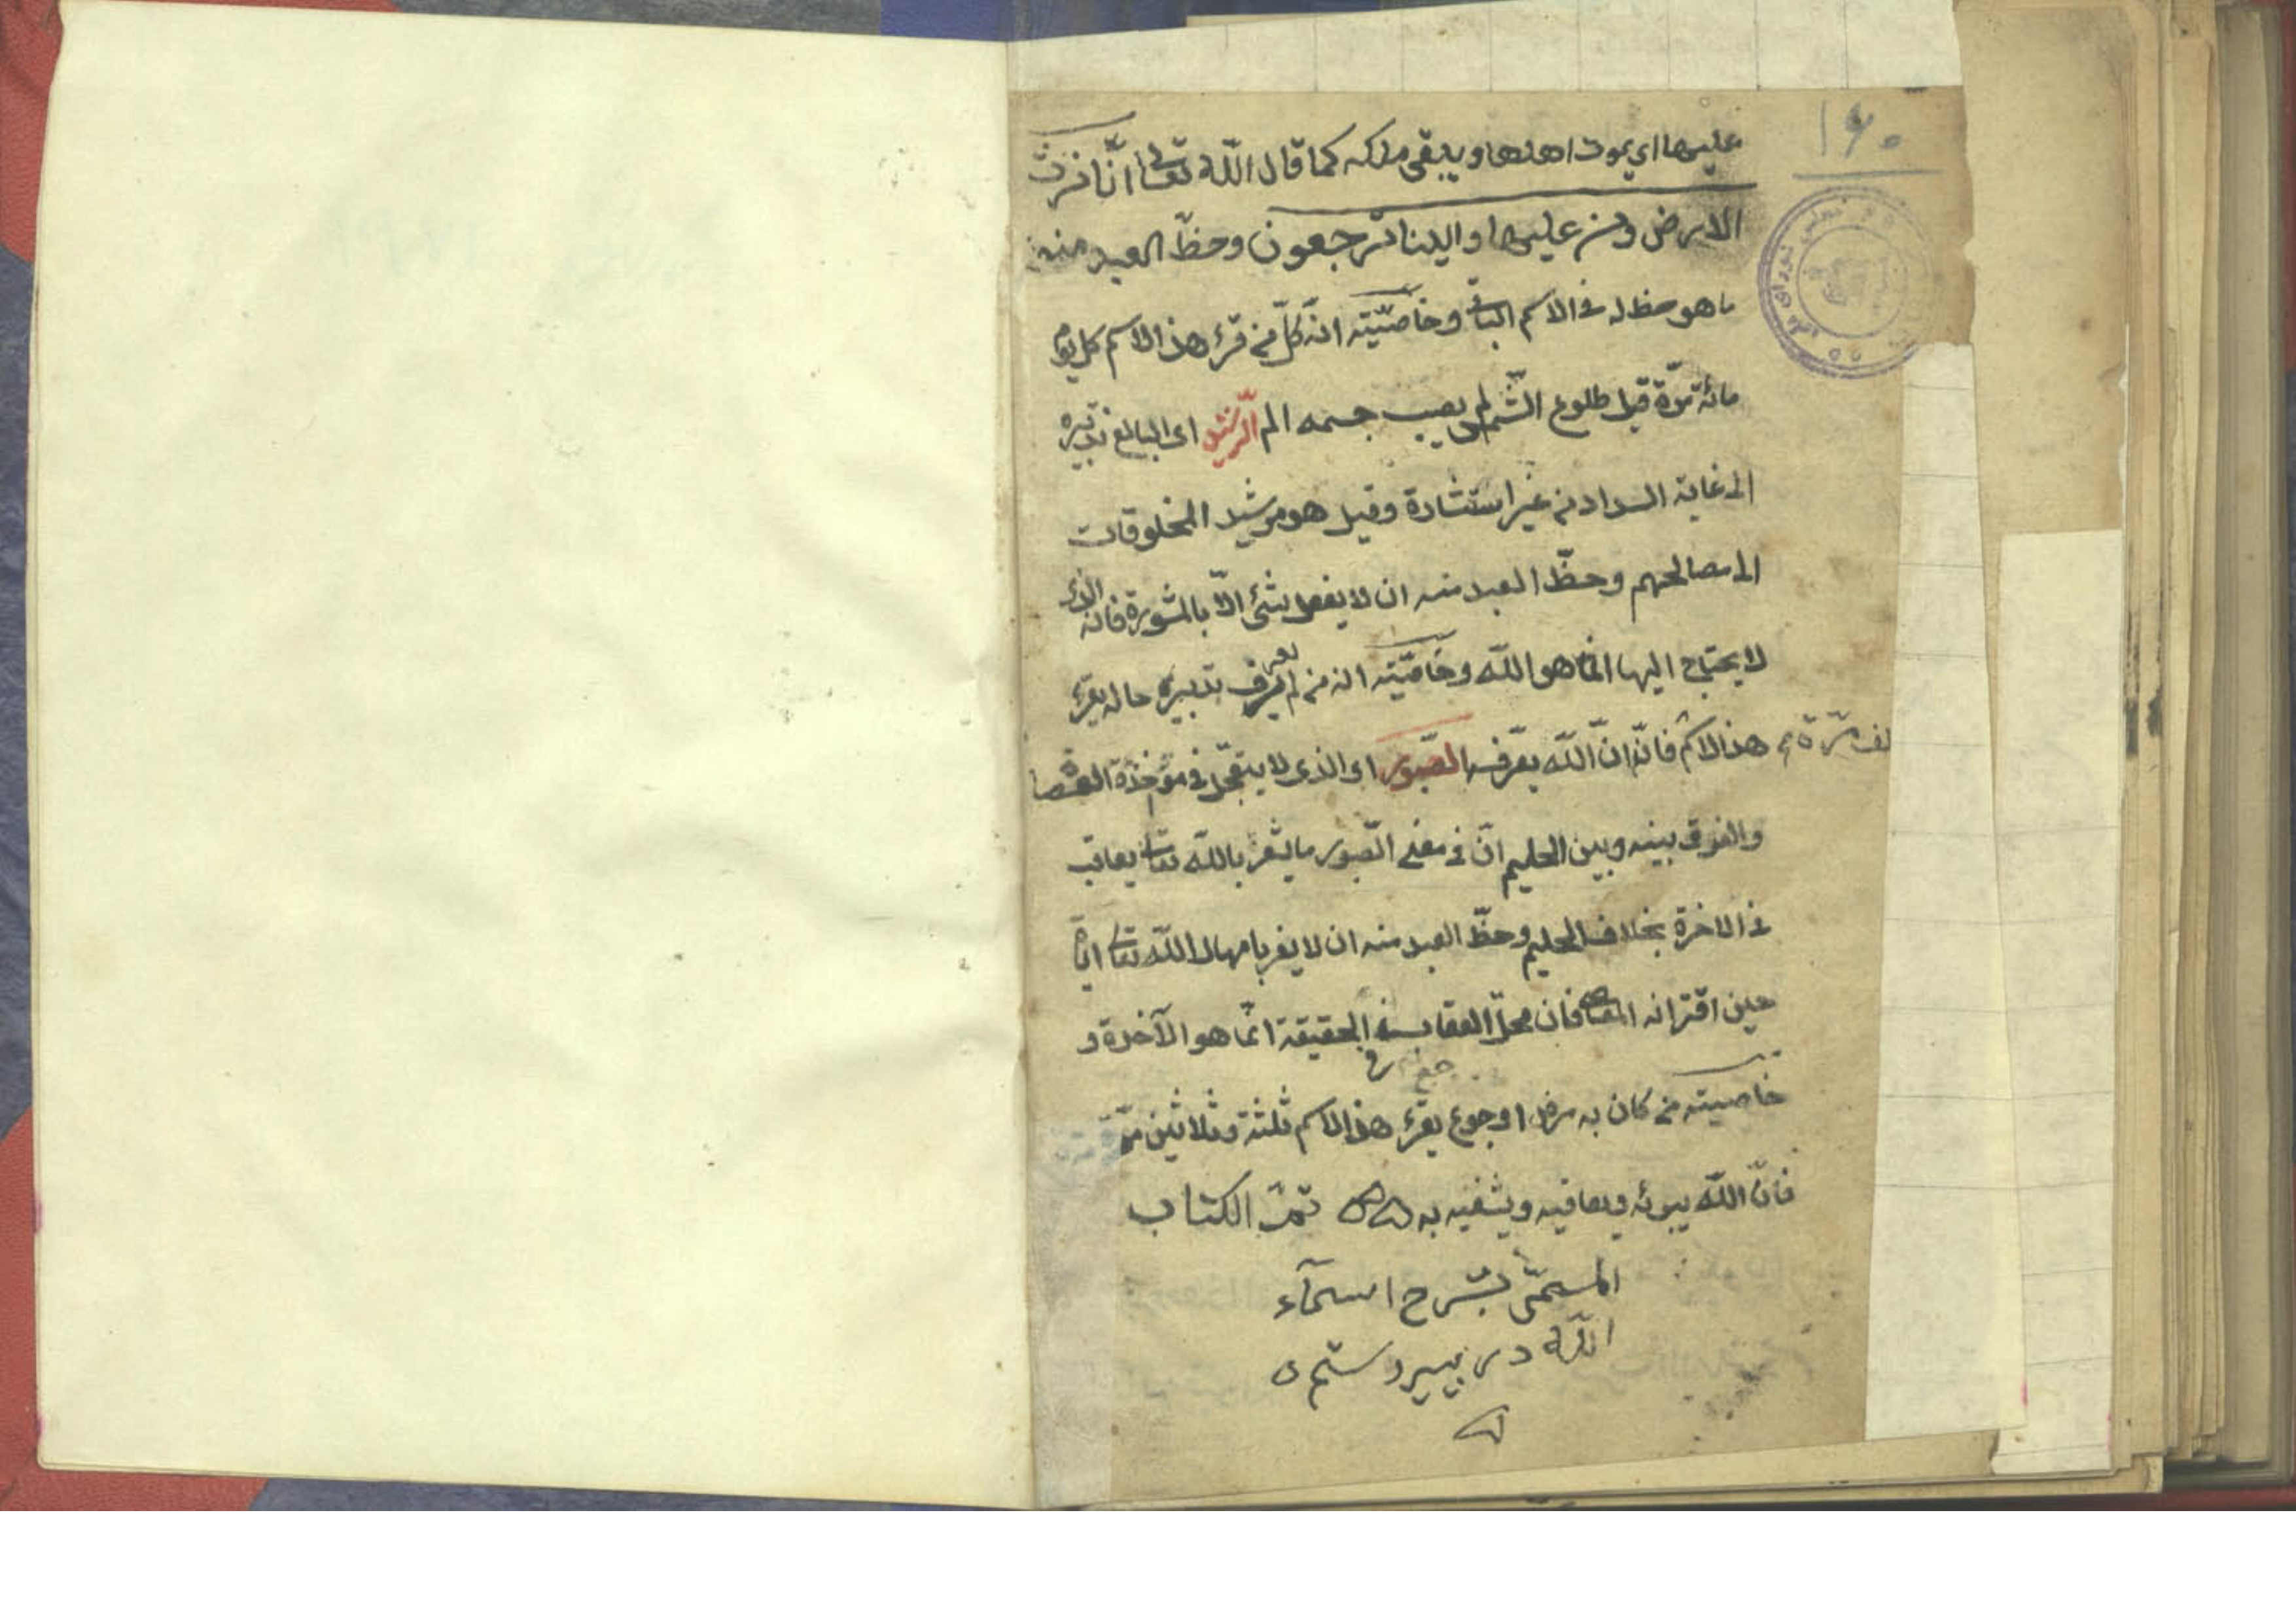 ۱۶۰
عليها اي يموت اهلها ويبقى ملكه كما قال الله تعالى انّا نرث
الارض ومن عليها والينا ترجعون وحظّ العبد منه
ما هو حظ له فى الاسم الباقى وخاصّيّته انّه كلّ من قرء هذا الاسم كل يوم
مائة مرّة قبل طلوع الشّمس لم يصب جسمه الم الرّشيد اى البالغ تدبيره
الى غاية السداد من غير استشارة وقيل هو مرشد المخلوقات
الى مصالحهم وحظّ العبد منه ان لا يفعل شئ الّا بالمشورة فانه الذى
لا يحتاج اليها انما هو الله وخاصّيّته انه من لم يعرف تدبير حاله يقرء
هذا الاسم فانّه انّ الله يعرّفه الصّبور اى الذى لا يتعجّل فى مؤخذة العصا
والفرق بينه وبين الحليم انّ فى معنى الصّبور ما يشعر بالله تعالى يعاقب
فى الاخرة بخلاف الحليم وحظّ العبد منه ان لا يغر بامهال الله تعالى ايّاه
حين اقترانه المعاصى فان محلّ العقاب فى الحقيقة انّما هو الآخرة و
خاصيته من كان به مرض او جوع يقرء هذا الاسم ثلثة وثلاثين مرّة
فانّ الله يبرئه ويعافيه ويشفيه به تمت الكتاب
المسمّى بشرح اسمآء
الله